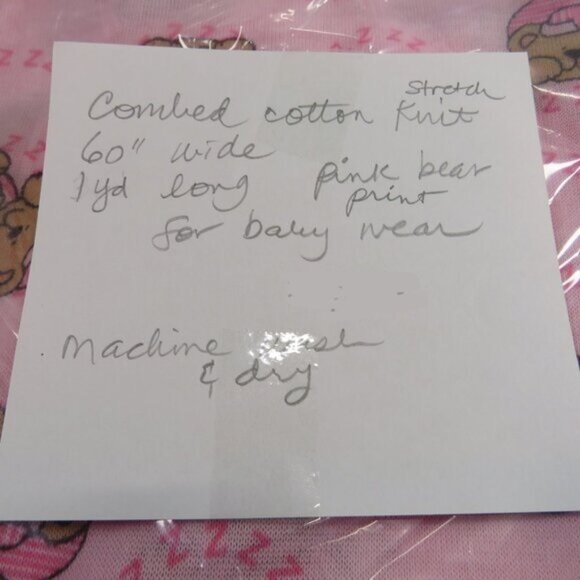 Combed cotton stretch Knit
60" wide
1 yd long pink bear print
for baby wear
Machine wash
& dry
z z z z
z z z